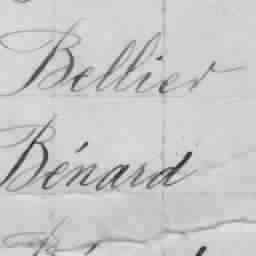 Bellier
Bénard